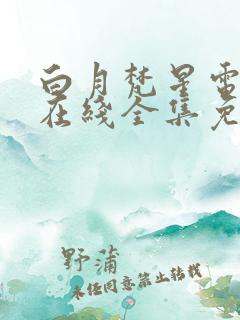 白月梵星电
在线全集免
野蒲
未经同意禁止转载